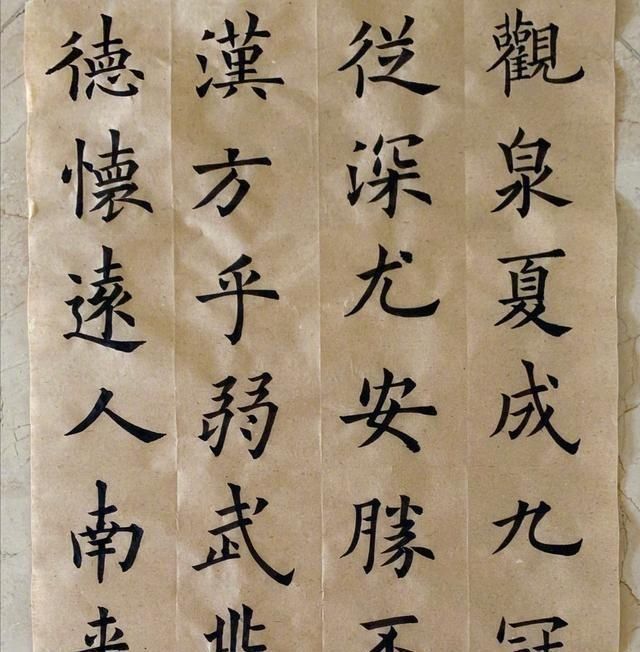 觀泉夏成九冠
従深尤安勝
漢方乎弱武
德懷遠人南